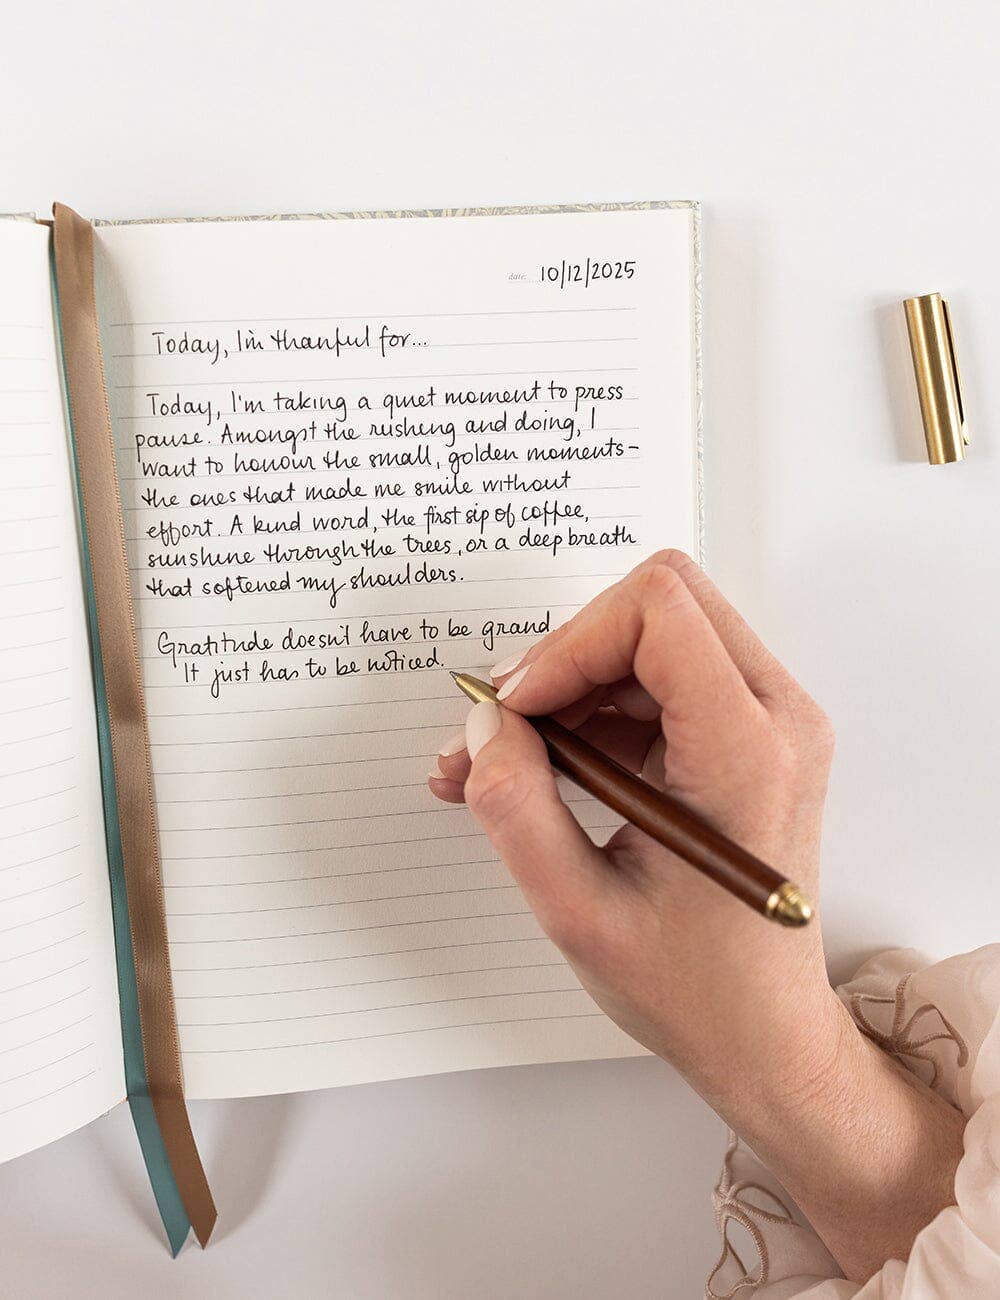 date: 10/12/2025
Today, I'm thankful for...
Today, I'm taking a quiet moment to press
pause. Amongst the rushing and doing, I
want to honour the small, golden moments-
the ones that made me smile without
effort. A kind word, the first sip of coffee,
sunshine through the trees, or a deep breath
that softened my shoulders.
Gratitude doesn't have to be grand.
It just has to be noticed.